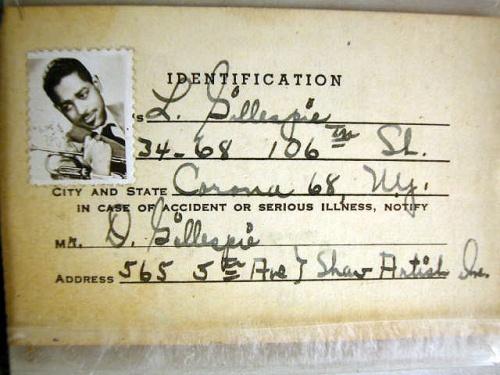 IDENTIFICATION
s L. Gillespie
34-68 106TH St.
CITY AND STATE Corona 68, N.y.
IN CASE OF ACCIDENT OR SERIOUS ILLNESS, NOTIFY
MR. D. Gillespie
ADDRESS 565 5TH Ave Shaw Artist Inc.